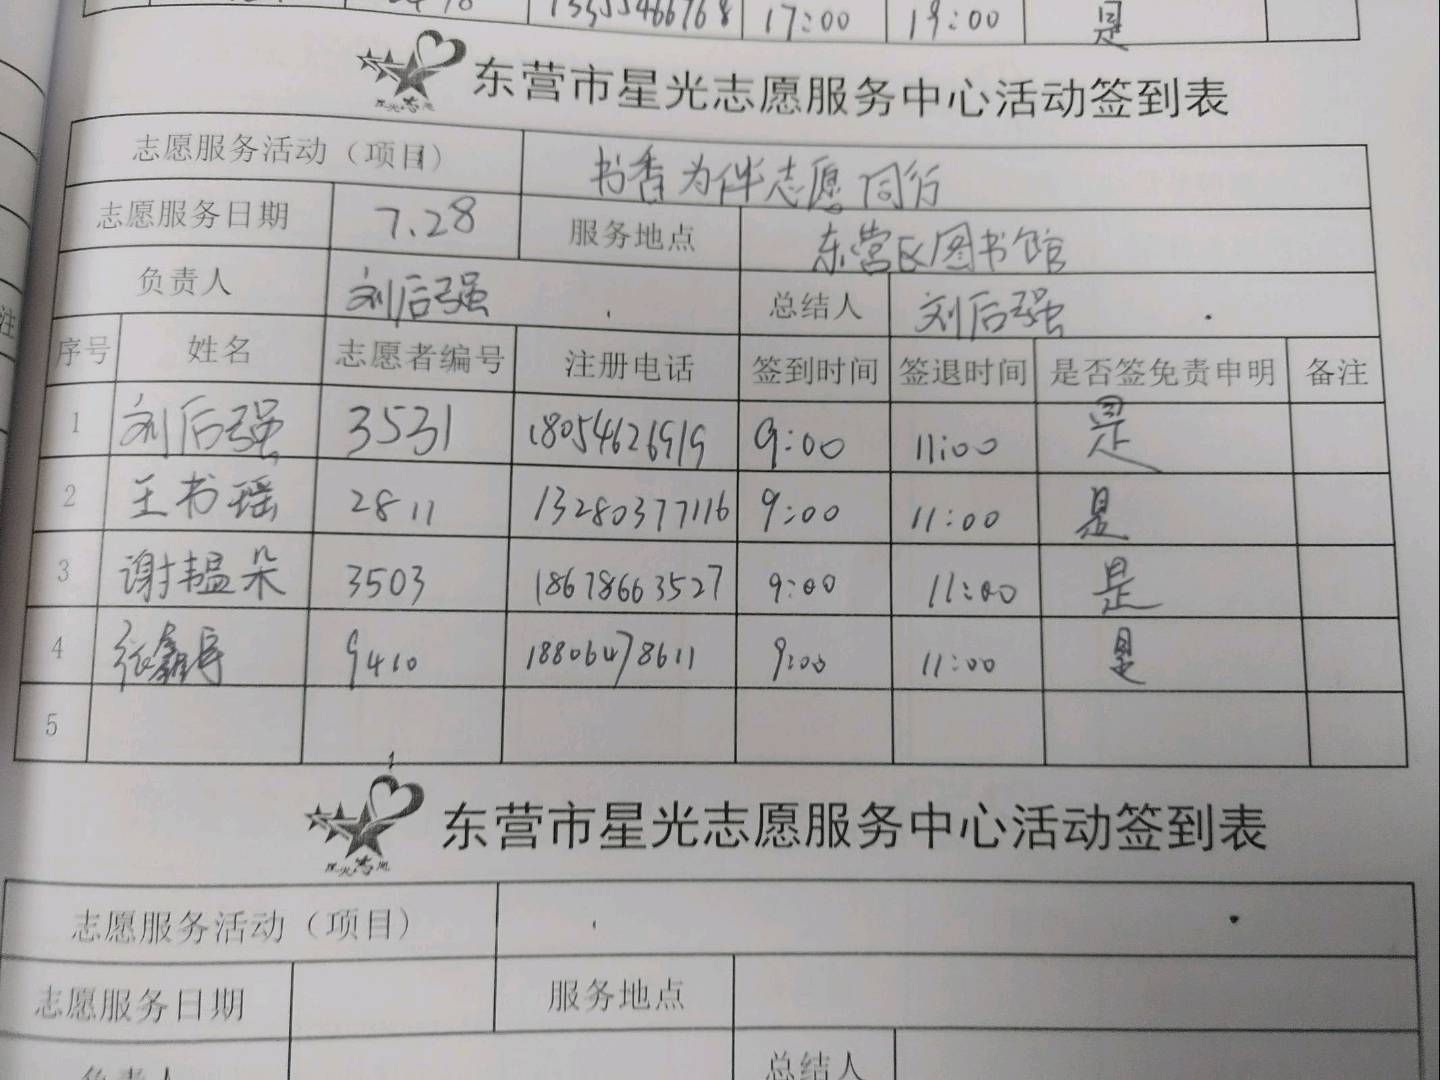 13355466768 17:00 19:00 是
东营市星光志愿服务中心活动签到表
志愿服务活动（项目） 书香为伴志愿同行
志愿服务日期 7.28 服务地点 东营区图书馆
负责人 刘后强 总结人 刘后强
序号 姓名 志愿者编号 注册电话 签到时间 签退时间 是否签免责申明 备注
1 刘后强 3531 18054626919 9:00 11:00 是
2 王书瑶 2811 13280377116 9:00 11:00 是
3 谢韫朵 3503 18678663527 9:00 11:00 是
4 张鑫 9410 18806478611 9:00 11:00 是
5
东营市星光志愿服务中心活动签到表
志愿服务活动（项目）
志愿服务日期 服务地点
负责人 总结人